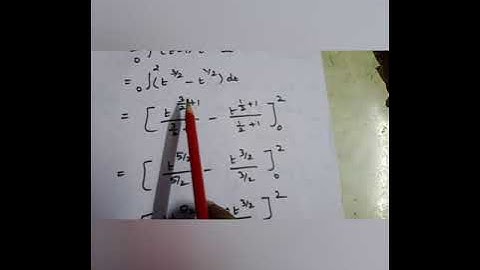 = ₀∫² (t^3/2 − t^1/2) dt
= [ t^3/2+1 / 3/2 + − t^1/2+1 / 1/2+1 ]₀²
= [ t^5/2 / 5/2 − t^3/2 / 3/2 ]₀²
t^3/2 ]²